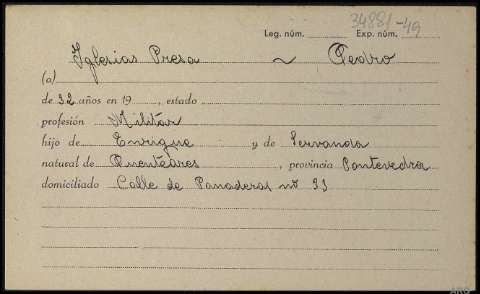 Leg. núm. Exp. núm. 34881-49
Iglesias Presa ~ Pedro
(a)
de 32 años en 19 , estado
profesión Militar
hijo de Enrique y de Servanda
natural de , provincia Pontevedra
domiciliado Calle de Panaderos nº 33